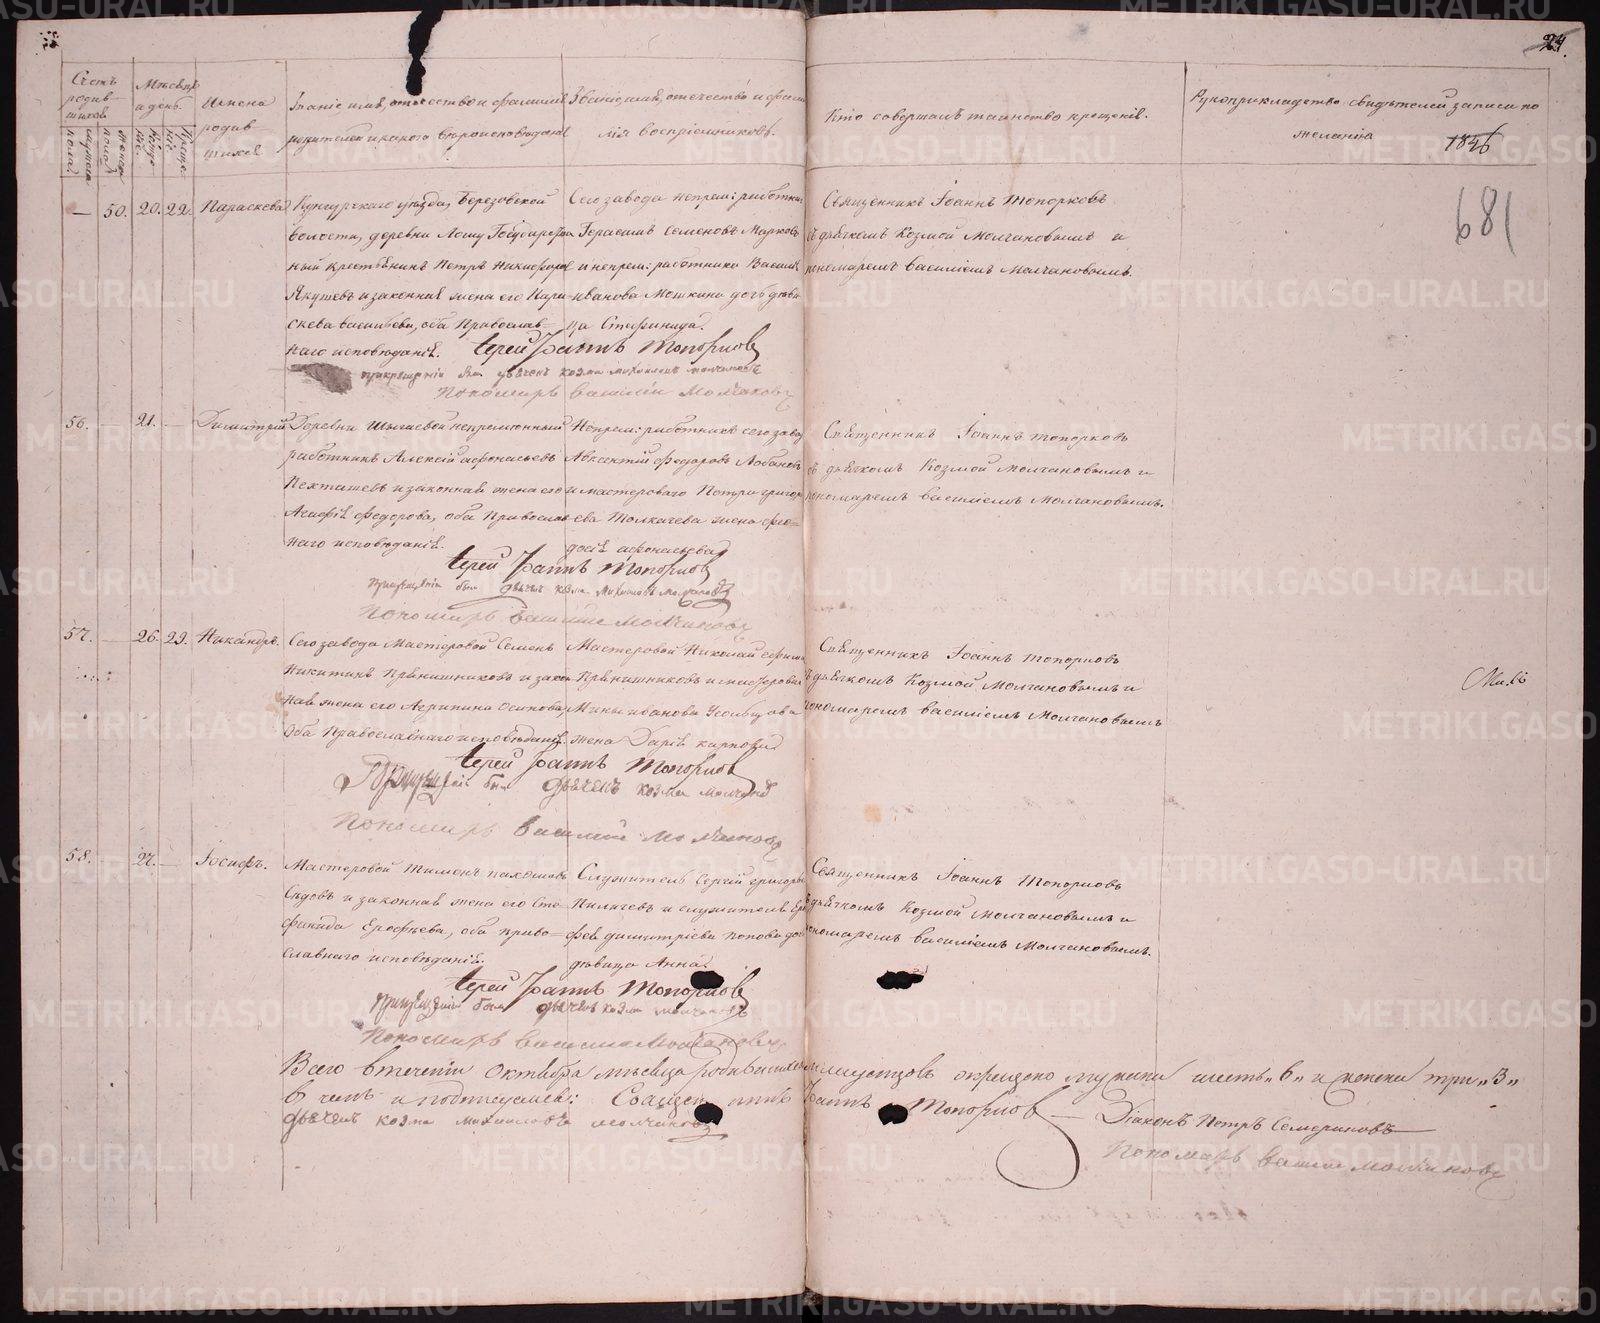 24.
Счетъ родив-шихся
мужеска пола
женска пола
Месяцъ и день
рожде-ніе
креще-ніе
Имена родив-шихся
Званіе, имя, отечество и фамилія родителей и какого вероисповеданія
Званіе, имя, отечество и фами-лія воспріемниковъ.
Кто совершалъ таинство крещенія.
Рукоприкладство свидѣтелей записи по желанію
1846
681
— 50. 20. 22. Параскева
Кунгурскаго уѣзда, Березовской
волости, деревни
Государствен
ный крестьянинъ Петръ Никифоровъ
Якушевъ и законная жена его Пара-
скева Васильева, оба Православ-
наго исповѣданія.
Сего завода непрем: работни
Герасимъ Семеновъ Марковъ
и непрем: работника Василія
Иванова Мошкина дочь дѣви-
ца Стефанида.
Священникъ Іоаннъ Топорковъ
съ дьячкомъ Козмой Молчановымъ и
пономаремъ Василіемъ Молчановымъ.
Іерей Іоаннъ Топорковъ
при крещеніи былъ дьячекъ Козма Михаиловъ Молчановъ
Пономарь Василій Молчановъ
56. — 21. — Димитрій
Деревни непремѣнный
работникъ Алексѣй Афонасьевъ
и законная жена его
Агафія Федорова, оба Православ
наго исповѣданія.
Непрем: работникъ сего завода
Авксентій Федоровъ Лобановъ
и мастероваго Петра Григорь
ева Толкачева жена Фео-
досія Афонасьева
Священникъ Іоаннъ Топорковъ
съ дьячкомъ Козмой Молчановымъ и
пономаремъ Василіемъ Молчановымъ.
Іерей Іоаннъ Топорковъ
при крещеніи былъ дьячекъ Козма Михаиловъ Молчановъ
Пономарь Василій Молчановъ
57. — 26. 29. Никандръ.
Сего завода Мастеровой Семенъ
Никитинъ Прянишниковъ и закон
ная жена его Агрипина Осипова,
оба Православнаго исповѣданія.
Мастеровой Николай Ефимовъ
Прянишниковъ и мастероваго
Мины Иванова
жена Дарія Карпова
Священникъ Іоаннъ Топорковъ
съ дьячкомъ Козмой Молчановымъ и
пономаремъ Василіемъ Молчановымъ
Іерей Іоаннъ Топорковъ
При крещеніи былъ дьячекъ Козма Молчановъ
Пономарь Василій Молчановъ
58. — 27. — Іосифъ.
Мастеровой Тимонъ Пахомовъ
Седовъ и законная жена его Сте-
фанида Ерофѣева, оба право-
славнаго исповѣданія.
Служитель Сергѣй Григорьевъ
и служителя Еро
фея Димитріева Попова дочь
дѣвица Анна.
Священникъ Іоаннъ Топорковъ
съ дьячкомъ Козмой Молчановымъ и
пономаремъ Василіемъ Молчановымъ.
Іерей Іоаннъ Топорковъ
При крещеніи былъ дьячекъ Козма Молчановъ
Пономарь Василій Молчановъ
Всего в теченіи Октября месяца родившихся младенцовъ окрещено мужска шесть „6„ и женска три „3„
в чемъ и подписуемся: Священникъ Іоаннъ Топорковъ — Діаконъ Петръ Семериковъ
дьячекъ Козма Михаиловъ Молчановъ
Пономарь Василій Молчановъ
METRIKI.GASO-URAL.RU